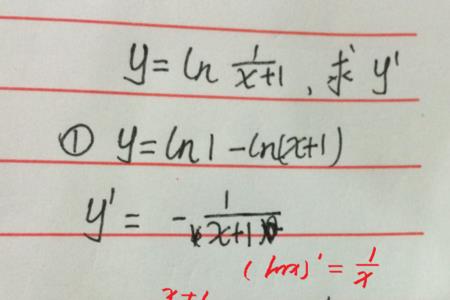 y = ln 1/(x+1) , 求 y'
① y = ln1 - ln(x+1)
y' = - 1/(x+1)
(lnx)' = 1/x
x+1